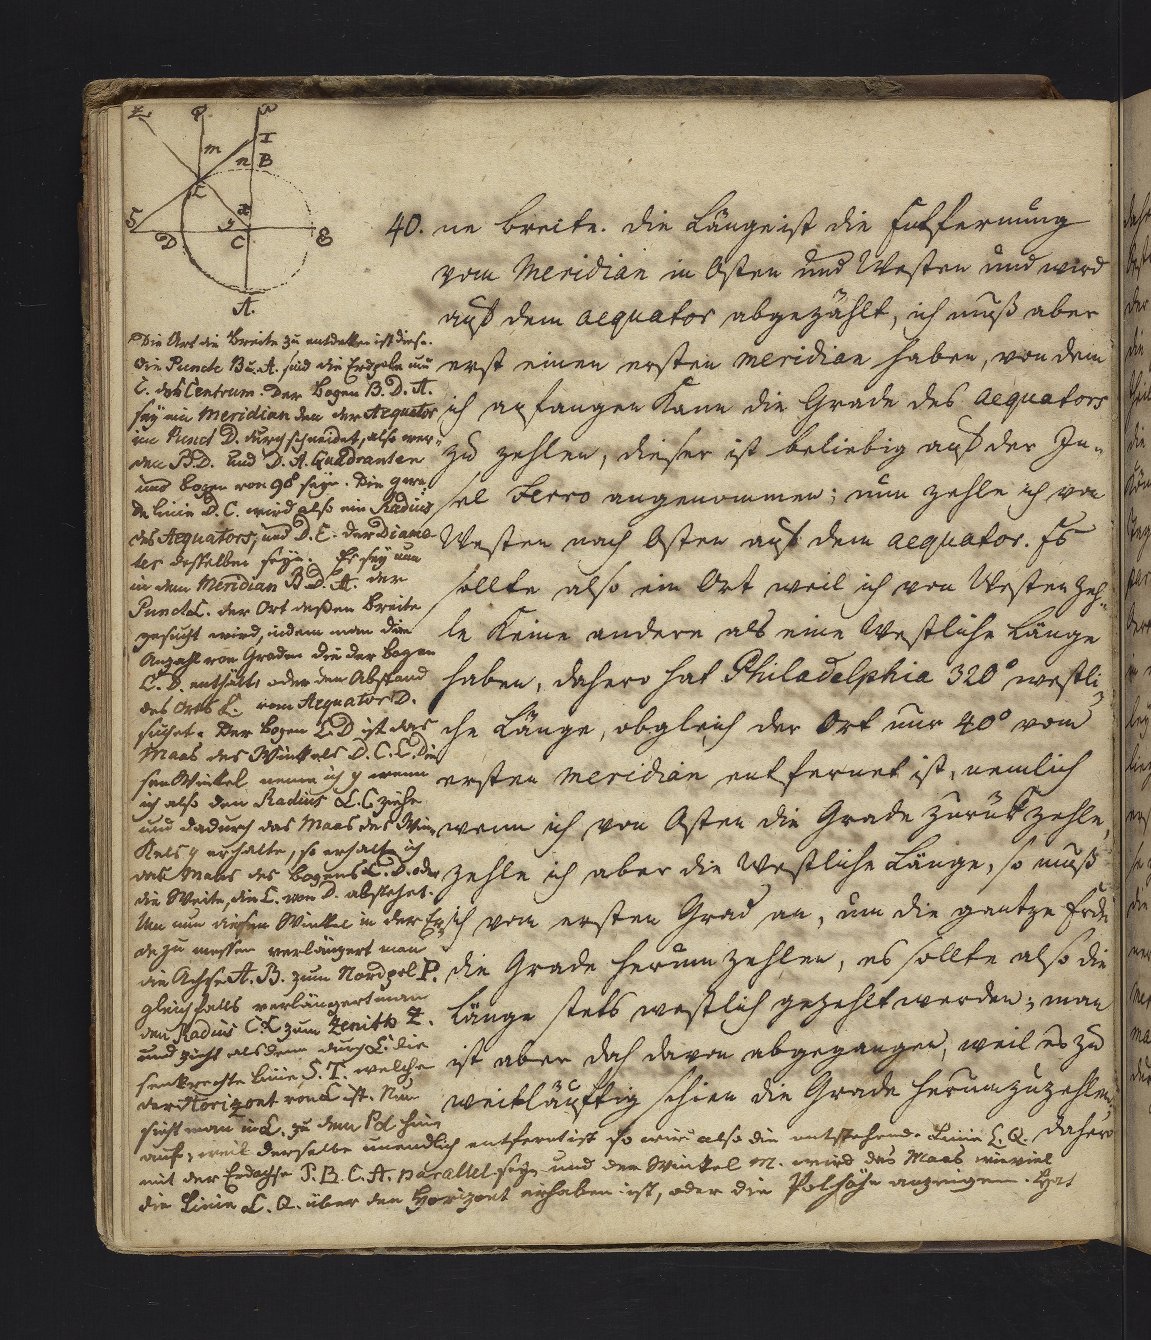 Z Q P
m I
n B
L
x
S D y C E
A.
40. ne Breite. Die Länge ist die Entfernung
vom Meridian in Osten und Westen und wird
auf dem aequator abgezählt, ich muß aber
erst einen ersten meridian haben, von dem
ich anfangen kann die Grade des aequators
zu zehlen, dieser ist beliebig auf der In-
sel Ferro angenommen; nun zehle ich von
Westen nach Osten auf dem aequator. Es
sollte also ein Ort weil ich von Westen zeh-
le keine andere als eine Westliche Länge
haben, dahero hat Philadelphia 320° westli-
che Länge, obgleich der Ort nur 40° vom
ersten meridian entfernet ist, nemlich
wenn ich von Osten die Grade zurük zehle,
zehle ich aber die Westliche Länge, so muß
ich vom ersten Grad an, um die gantze Erde
die Grade herum zehlen, es sollte also die
Länge stets westlich gezehlt werden; man
ist aber doch davon abgegangen, weil es zu
weitläuftig schien die Grade herumzuzehlen,
dahero
Die Art die Breite zu entdekken ist diese.
Die Puncte B u. A. sind die Erdpole und
C. das Centrum. Der Bogen B. D. A.
sey ein Meridian den der Aequator
im Punct D. durchschneidet, also wer-
den B D. und D. A. Quadranten
und Bogen von 90° seyn. Die gera-
de Linie D. C. wird also ein Radius
des Aequators, und D. E. der Diame-
ter desselben seyn. Es sey nun
in dem Meridian B. D. A. der
Punct L. der Ort deßen Breite
gesucht wird, indem man die
Anzahl von Graden die der Bogen
L. D. enthält, oder den Abstand
des Orts L. vom Aequator D.
suchet. Der Bogen L D ist das
Maas des Winkels D. C. L. Die-
sen Winkel nenne ich y wenn
ich also den Radius L. C. ziehe
und dadurch das Maas des Win-
kels y erhalte, so erhalte ich
das Maas des Bogens L. D. oder
die Weite, die L. von D. abstehet.
Um nun diesen Winkel in der Er-
de zu messen verlängert man
die Achse A. B. zum Nordpol P.
gleichfalls verlängert man
den Radius C. L zum Zenith Z.
und zieht alsdenn durch L. die
senkrechte Linie S. T. welche
der Horizont von L ist. Nun
sieht man in L. zu dem Pol hin-
auf, weil derselbe unendlich entfernt ist so wird also die entstehende Linie L. Q.
mit der Erdachse P. B. C. A. parallel seyn und der Winkel m. wird das Maas wieviel
die Linie L. Q. über den Horizont erhaben ist, oder die Polhöhe anzeigen. Hat